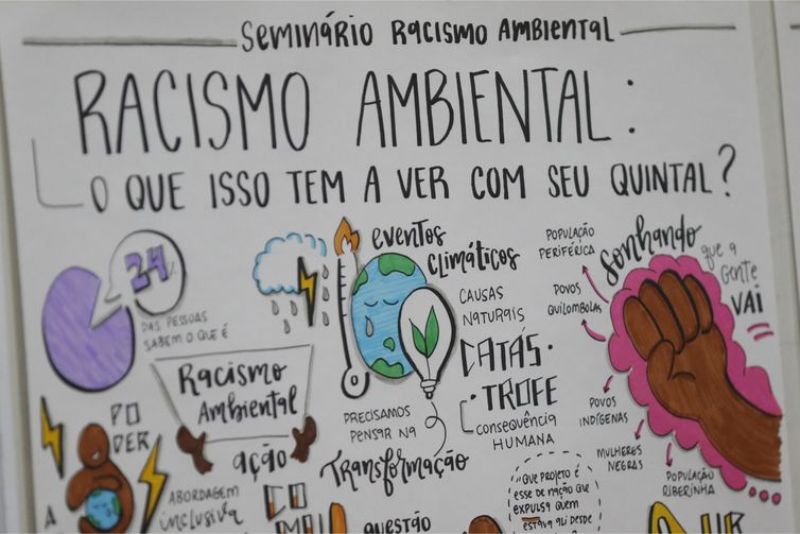 SEMINÁRIO RACISMO AMBIENTAL
RACISMO AMBIENTAL:
O QUE ISSO TEM A VER COM SEU QUINTAL?
24%
DAS PESSOAS
SABEM O QUE É
Racismo
Ambiental
PODER
ação
ABORDAGEM
inclusiva
eventos
climáticos
CAUSAS
NATURAIS
CATÁS-
TROFE
CONSEQUÊNCIA
HUMANA
PRECISAMOS
PENSAR NA
Transformação
QUESTÃO
QUE PROJETO É
ESSE DE NAÇÃO QUE
EXPULSA QUEM
ESTAVA ALI DESDE
sonhando
que a
gente
VAI
POPULAÇÃO
PERIFÉRICA
POVOS
QUILOMBOLAS
POVOS
INDÍGENAS
MULHERES
NEGRAS
POPULAÇÃO
RIBEIRINHA